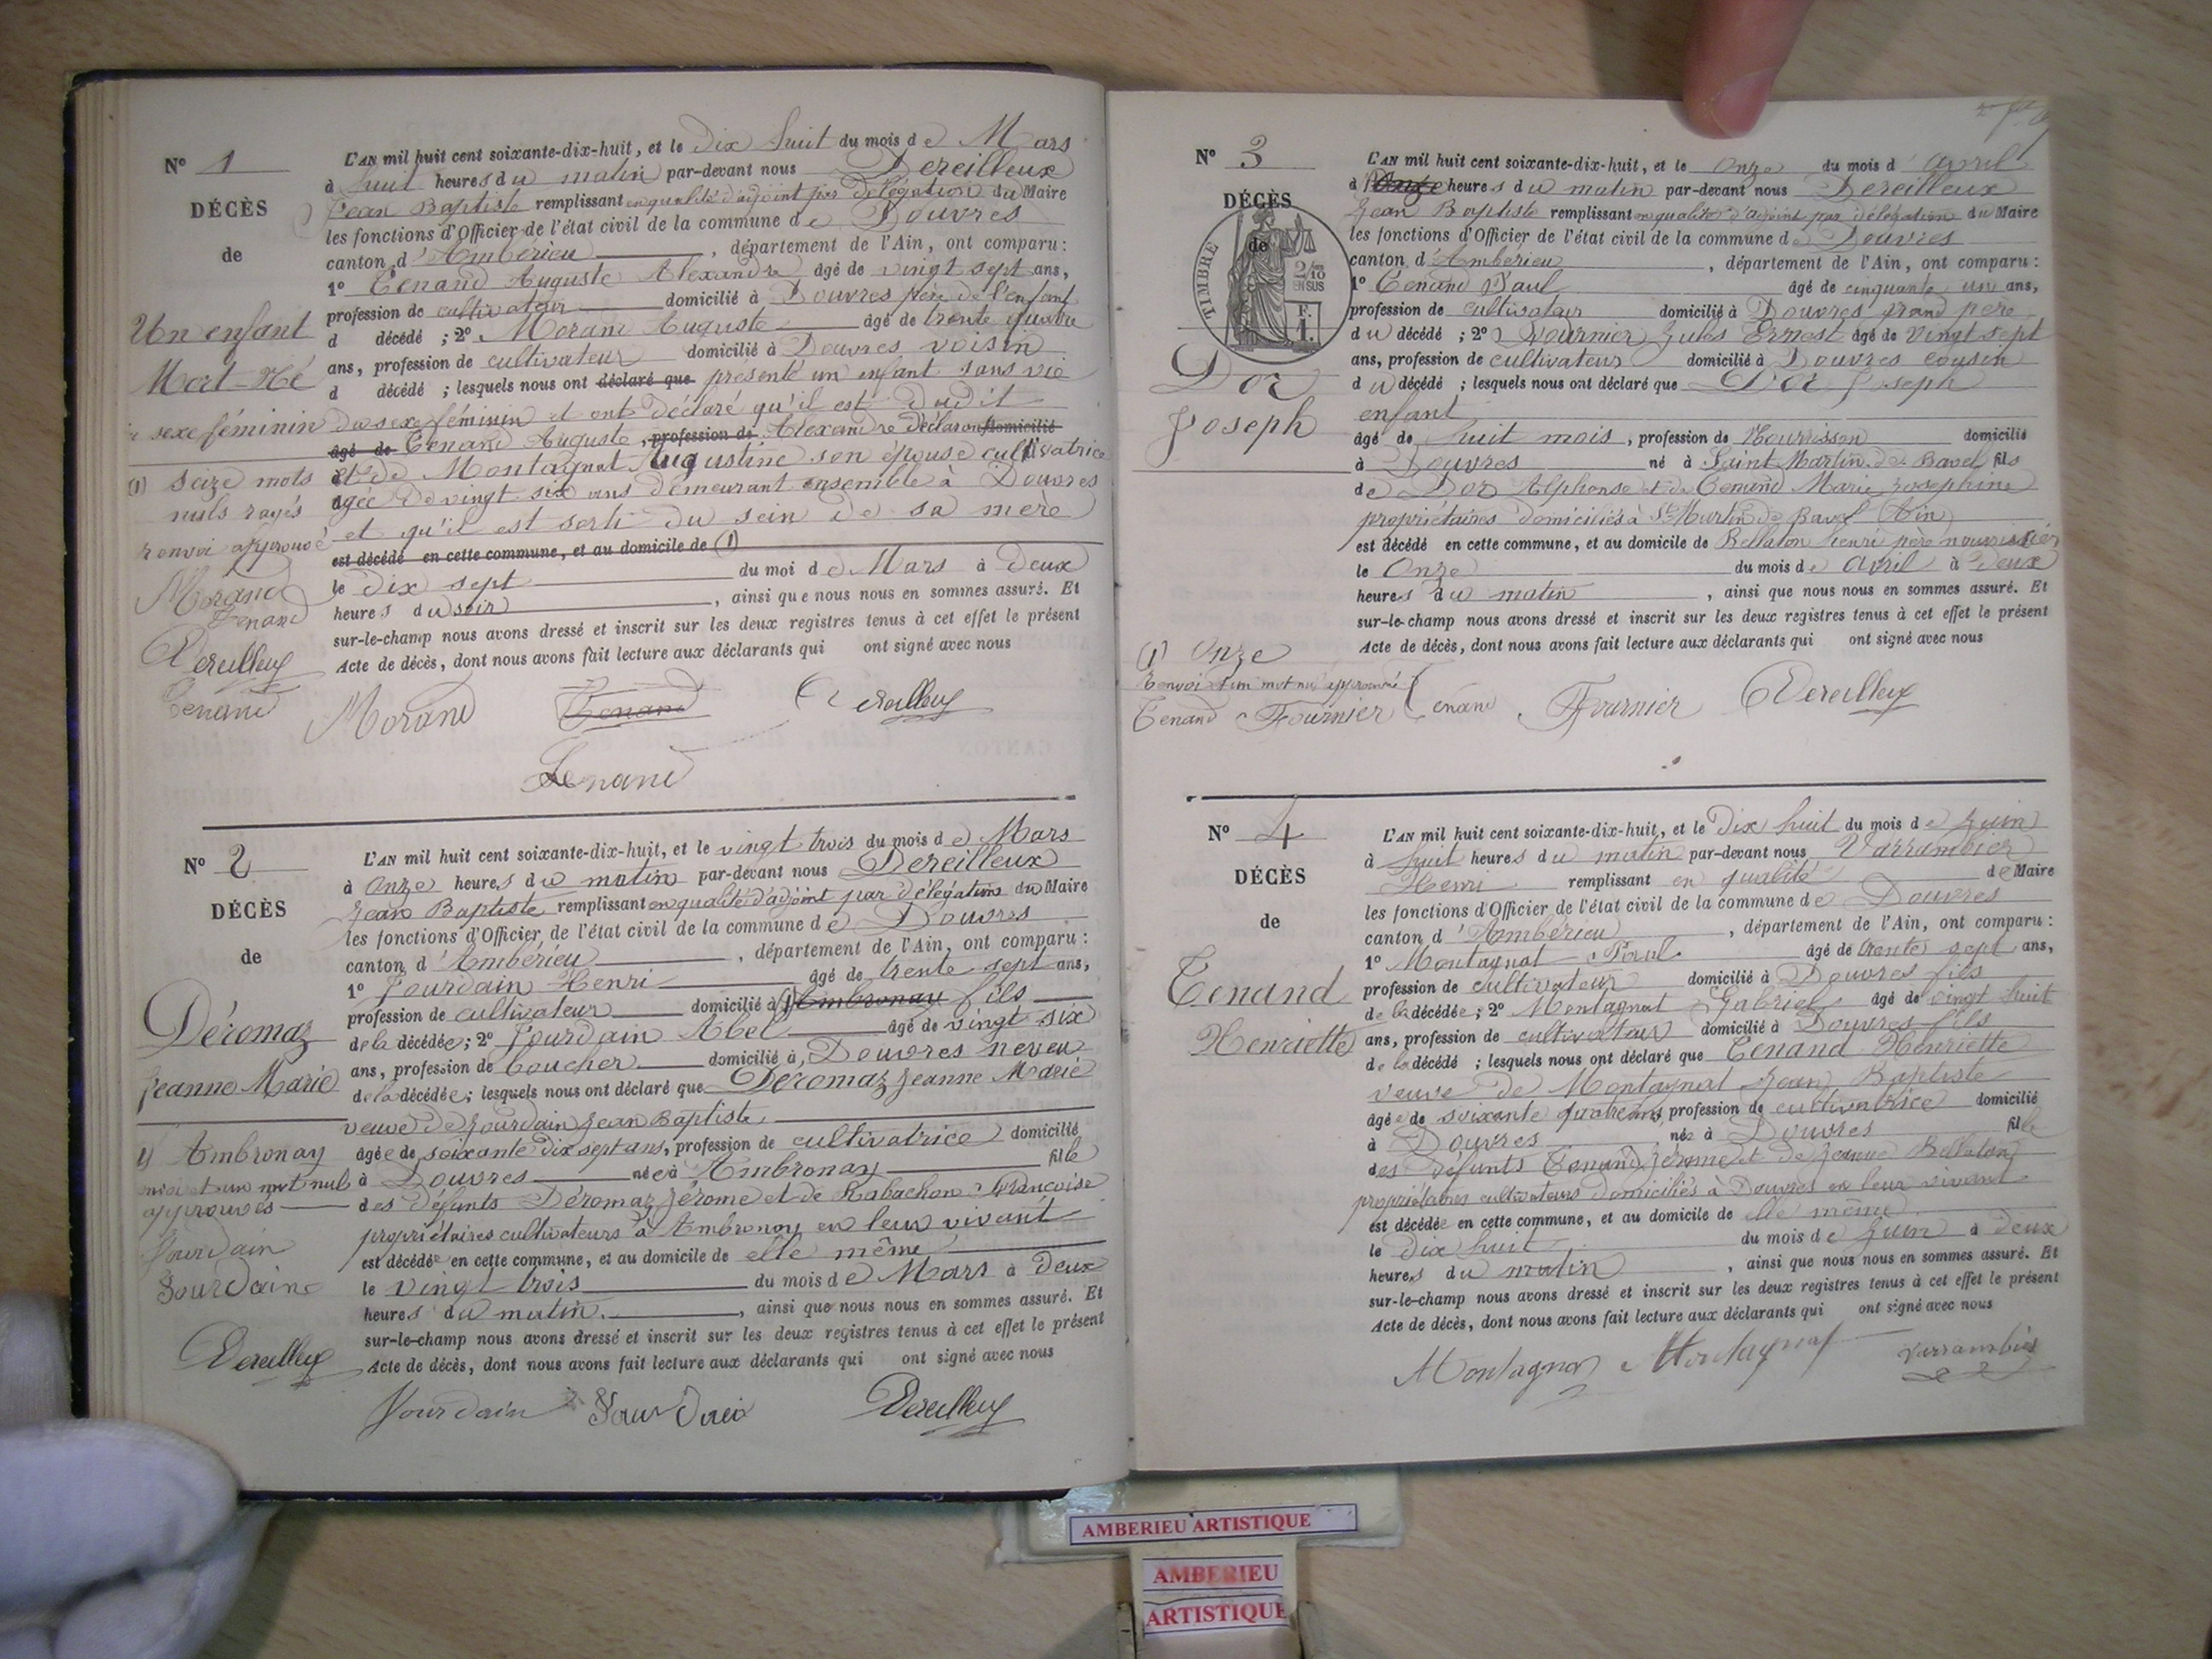 Nº 1
DÉCÈS
de
Un enfant
Mort-Né
sexe féminin
(1) seize mots
nuls rayés
renvoi approuvé
Morand
Tenand
Dereilleux
Tenand
L'AN mil huit cent soixante-dix-huit, et le Dix huit du mois de Mars
à huit heures du matin par-devant nous Dereilleux
Jean Baptiste remplissant en qualité d'adjoint par délégation du Maire
les fonctions d'Officier de l'état civil de la commune de Douvres
canton d'Ambérieu, département de l'Ain, ont comparu :
1º Tenand Auguste Alexandre âgé de vingt sept ans,
profession de cultivateur domicilié à Douvres père de l'enfant
d décédé ; 2º Morand Auguste âgé de trente quatre
ans, profession de cultivateur domicilié à Douvres voisin
d décédé ; lesquels nous ont déclaré que présenté un enfant sans vie
du sexe féminin et ont déclaré qu'il est dudit
âgé de Tenand Auguste, profession de Alexandre déclarant domicilié
et de Montagnat Augustine son épouse cultivatrice
agée de vingt six ans demeurant ensemble à Douvres
et qu'il est sorti du sein de sa mère
est décédé en cette commune, et au domicile de (1)
le dix sept du moi de Mars à deux
heures du soir, ainsi que nous nous en sommes assuré. Et
sur-le-champ nous avons dressé et inscrit sur les deux registres tenus à cet effet le présent
Acte de décès, dont nous avons fait lecture aux déclarants qui ont signé avec nous
Morand Tenand Dereilleux
Tenand
Nº 2
DÉCÈS
de
Déromaz
Jeanne Marie
Ambronay
renvoi et un mot nul
approuvés
Jourdain
Jourdain
Dereilleux
L'AN mil huit cent soixante-dix-huit, et le vingt trois du mois de Mars
à Onze heures du matin par-devant nous Dereilleux
Jean Baptiste remplissant en qualité d'adjoint par délégation du Maire
les fonctions d'Officier de l'état civil de la commune de Douvres
canton d'Ambérieu, département de l'Ain, ont comparu :
1º Jourdain Henri âgé de trente sept ans,
profession de cultivateur domicilié à (1) Ambronay fils
de la décédée ; 2º Jourdain Abel âgé de vingt six
ans, profession de boucher domicilié à Douvres neveu
de la décédée ; lesquels nous ont déclaré que Déromaz Jeanne Marie
veuve de Jourdain Jean Baptiste
âgée de soixante dix sept ans, profession de cultivatrice domicilié
à Douvres née à Ambronay fille
des défunts Déromaz Jérome et de Rabachon Francoise
propriétaires cultivateurs à Ambronay en leur vivant
est décédée en cette commune, et au domicile de elle même
le vingt trois du mois de Mars à deux
heures du matin, ainsi que nous nous en sommes assuré. Et
sur-le-champ nous avons dressé et inscrit sur les deux registres tenus à cet effet le présent
Acte de décès, dont nous avons fait lecture aux déclarants qui ont signé avec nous
Jourdain Jourdain Dereilleux
Nº 3
DÉCÈS
de
TIMBRE
2/10
EN SUS
F.
1.
Dor
Joseph
(1) Onze
Renvoi et un mot nul approuvé
Tenand Fournier
L'AN mil huit cent soixante-dix-huit, et le onze du mois d'avril
à (1) Onze heures du matin par-devant nous Dereilleux
Jean Baptiste remplissant en qualité d'adjoint par délégation du Maire
les fonctions d'Officier de l'état civil de la commune de Douvres
canton d'Ambérieu, département de l'Ain, ont comparu :
1º Tenand Paul âgé de cinquante un ans,
profession de cultivateur domicilié à Douvres grand père
du décédé ; 2º Fournier Jules Ernest âgé de vingt sept
ans, profession de cultivateur domicilié à Douvres cousin
du décédé ; lesquels nous ont déclaré que Dor Joseph
enfant
âgé de huit mois, profession de Nourrisson domicilié
à Douvres né à Saint Martin de Bavel fils
de Dor Alphonse et de Tenand Marie Josephine
propriétaires domiciliés à St Martin de Bavel (Ain)
est décédé en cette commune, et au domicile de Bellaton henri père nourricier
le Onze du mois de avril à deux
heures du matin, ainsi que nous nous en sommes assuré. Et
sur-le-champ nous avons dressé et inscrit sur les deux registres tenus à cet effet le présent
Acte de décès, dont nous avons fait lecture aux déclarants qui ont signé avec nous
Tenand Fournier Dereilleux
Nº 4
DÉCÈS
de
Tenand
Henriette
L'AN mil huit cent soixante-dix-huit, et le Dix huit du mois de Juin
à huit heures du matin par-devant nous Varrambier
Henri remplissant en qualité de Maire
les fonctions d'Officier de l'état civil de la commune de Douvres
canton d'Ambérieu, département de l'Ain, ont comparu :
1º Montagnat Paul âgé de trente sept ans,
profession de cultivateur domicilié à Douvres fils
de la décédée ; 2º Montagnat Gabriel âgé de vingt huit
ans, profession de cultivateur domicilié à Douvres fils
de la décédé ; lesquels nous ont déclaré que Tenand Henriette
veuve de Montagnat Jean Baptiste
âgée de soixante quatre ans, profession de cultivatrice domicilié
à Douvres née à Douvres fille
des défunts Tenand Jérome et de Jeanne Bellaton
propriétaires cultivateurs domiciliés à Douvres en leur vivant
est décédée en cette commune, et au domicile de elle même
le dix huit du mois de Juin à deux
heures du matin, ainsi que nous nous en sommes assuré. Et
sur-le-champ nous avons dressé et inscrit sur les deux registres tenus à cet effet le présent
Acte de décès, dont nous avons fait lecture aux déclarants qui ont signé avec nous
Montagnat Montagnat Varrambier
AMBERIEU ARTISTIQUE
AMBERIEU
ARTISTIQUE